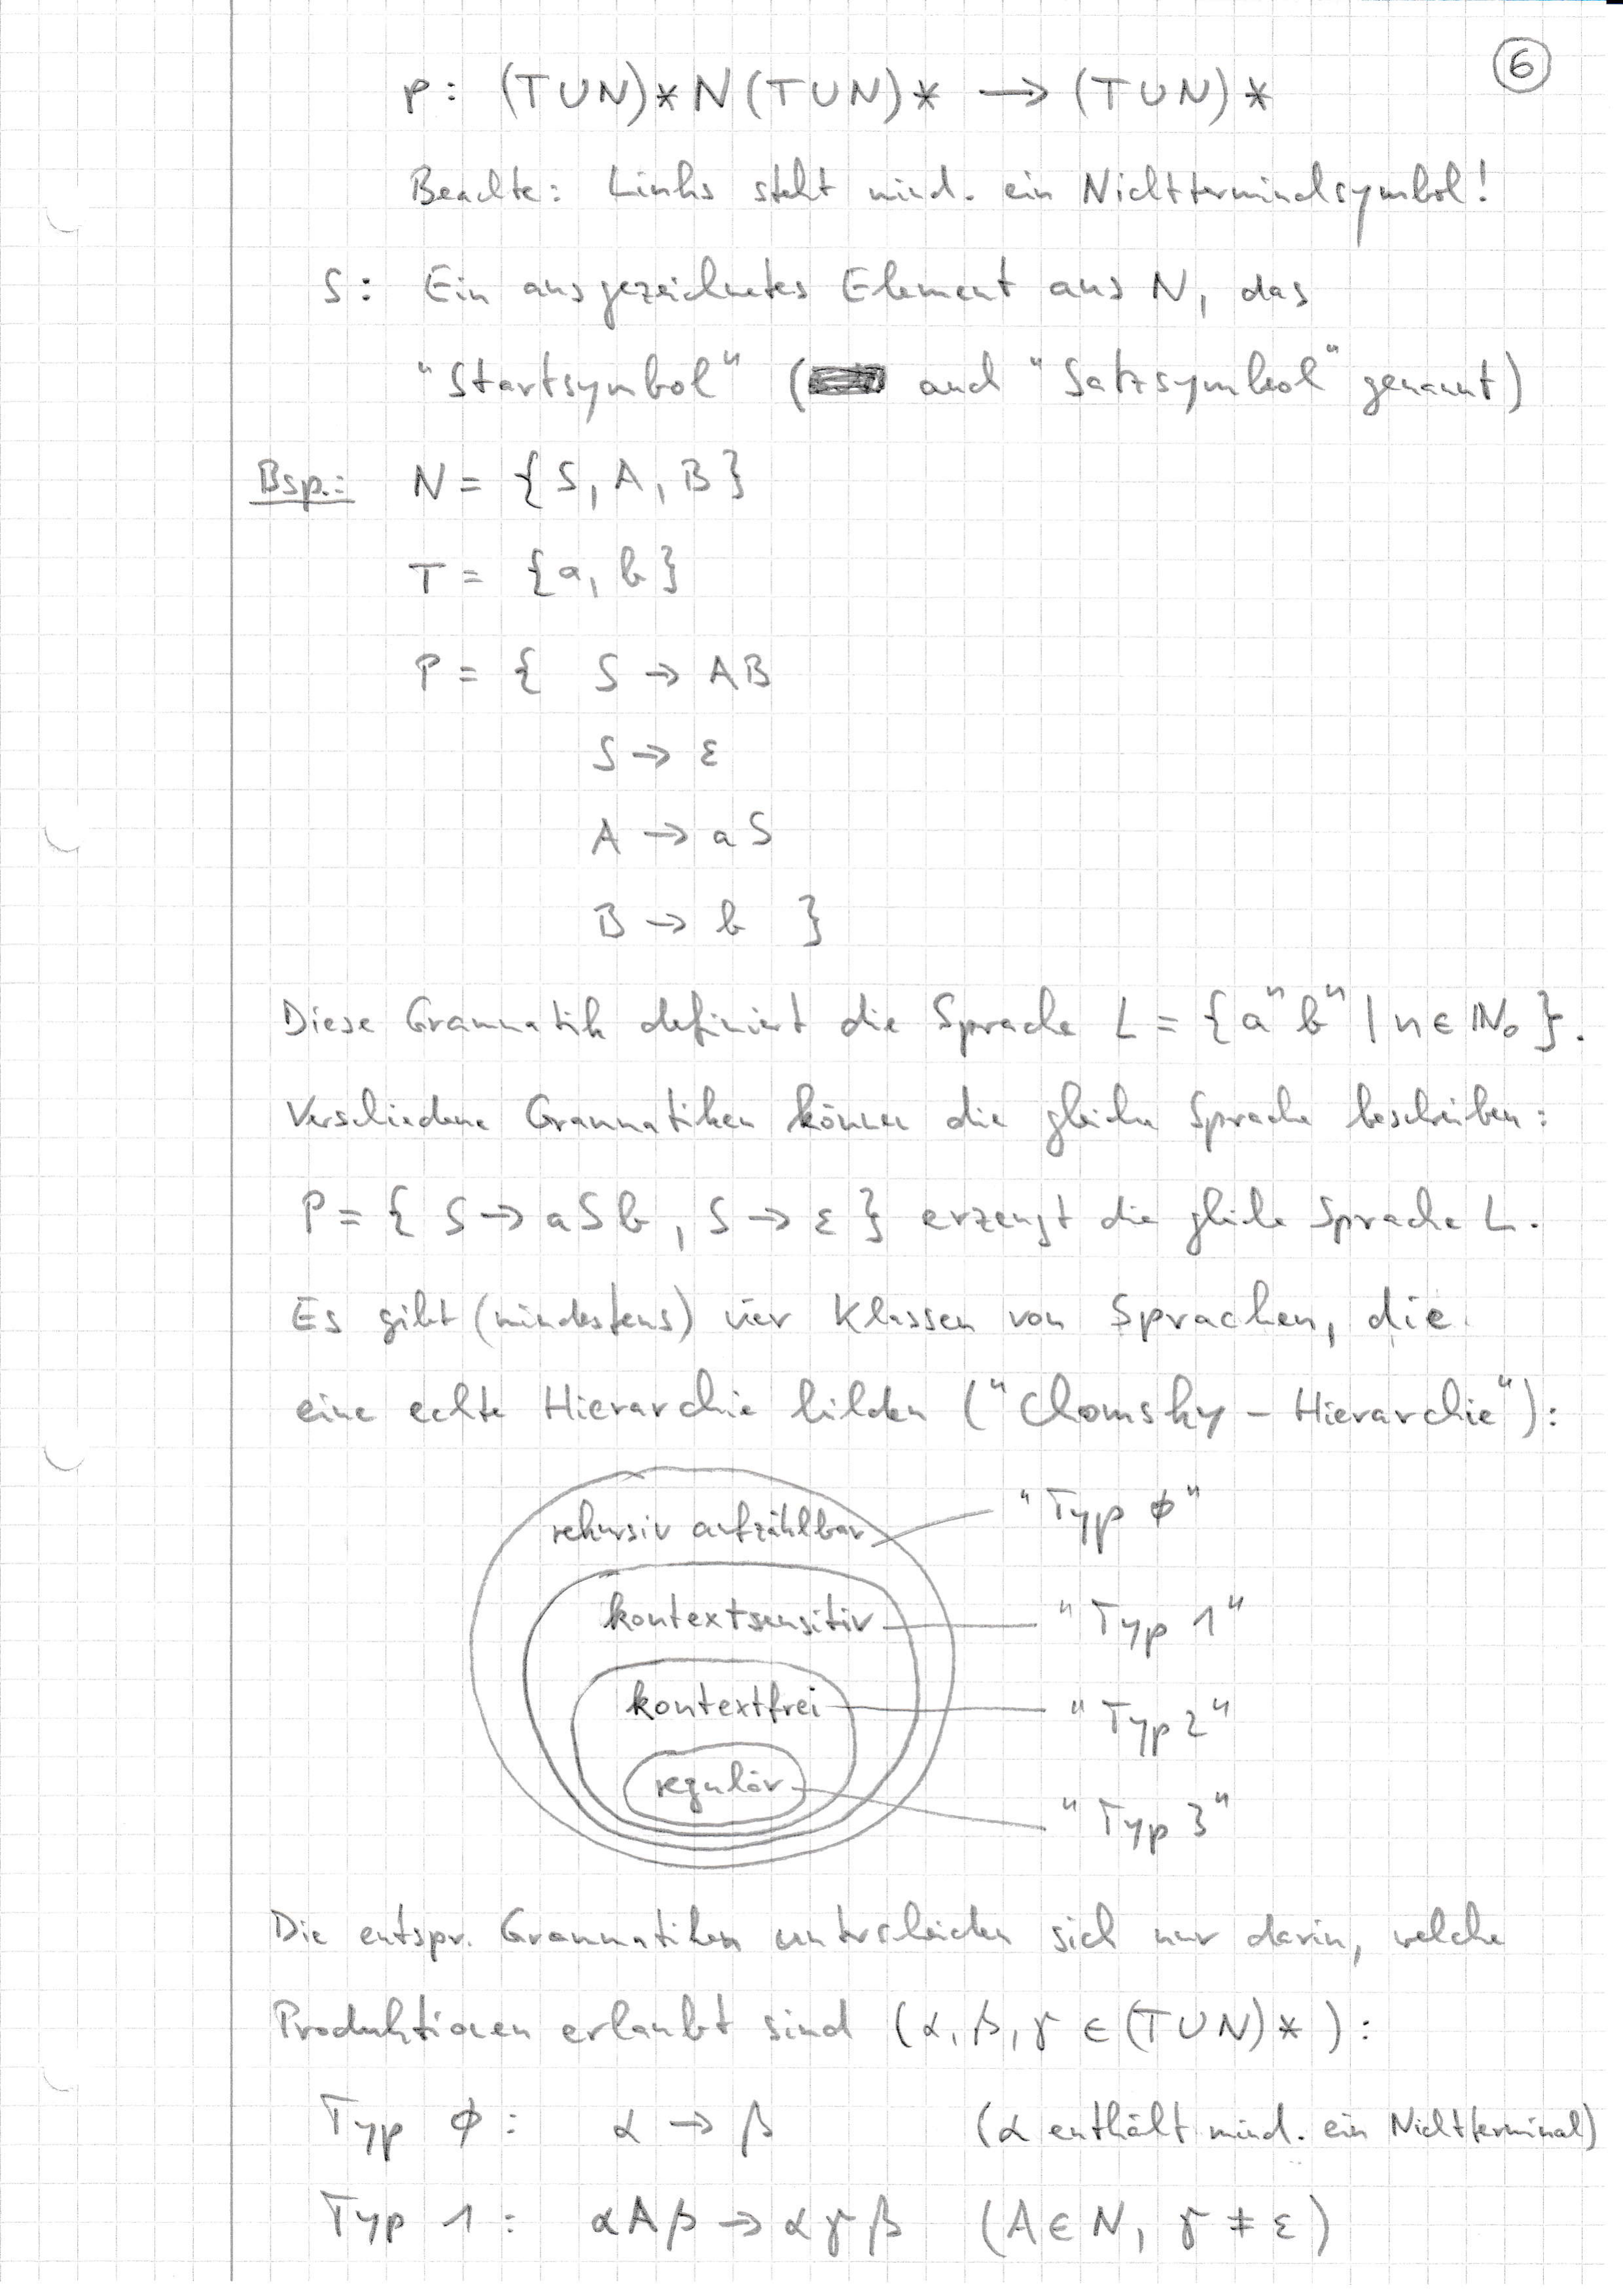 6
p: (T∪N)* N (T∪N)* → (T∪N)*
Beachte: Links steht mind. ein Nichtterminalsymbol!
S: Ein ausgezeichnetes Element aus N, das
"Startsymbol" ( auch "Satzsymbol" genannt)
Bsp.: N = {S, A, B}
T = {a, b}
P = { S → AB
S → ε
A → aS
B → b }
Diese Grammatik definiert die Sprache L = {aⁿ bⁿ | n ∈ ℕ₀}.
Verschiedene Grammatiken können die gleiche Sprache beschreiben:
P = { S → aSb, S → ε } erzeugt die gleiche Sprache L.
Es gibt (mindestens) vier Klassen von Sprachen, die
eine echte Hierarchie bilden ("Chomsky-Hierarchie"):
rekursiv aufzählbar "Typ 0"
kontextsensitiv "Typ 1"
kontextfrei "Typ 2"
regulär "Typ 3"
Die entspr. Grammatiken unterscheiden sich nur darin, welche
Produktionen erlaubt sind (α, β, γ ∈ (T∪N)*):
Typ 0: α → β (α enthält mind. ein Nichtterminal)
Typ 1: αAβ → αγβ (A ∈ N, γ ≠ ε)